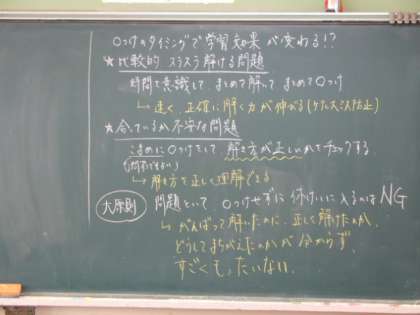 ○つけのタイミングで学習効果が変わる!?
★比較的スラスラ解ける問題
時間を意識して、まとめて解って、まとめて○つけ
→速く、正確に解く力が伸びる(ケアレスミス防止)
★合っているか不安な問題
こまめに○つけをして、解き方が正しいかをチェックする
→解き方を正しく理解できる
大原則 問題をといて、○つけせずに休けいに入るのはNG
→がんばって解いたのに、正しく解けたのか、
どうしてまちがえたのかが分からず、
すごくもったいない。